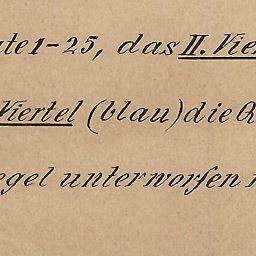 te 1-25, das II. Vie
Viertel (blau) die
egel unterworfen